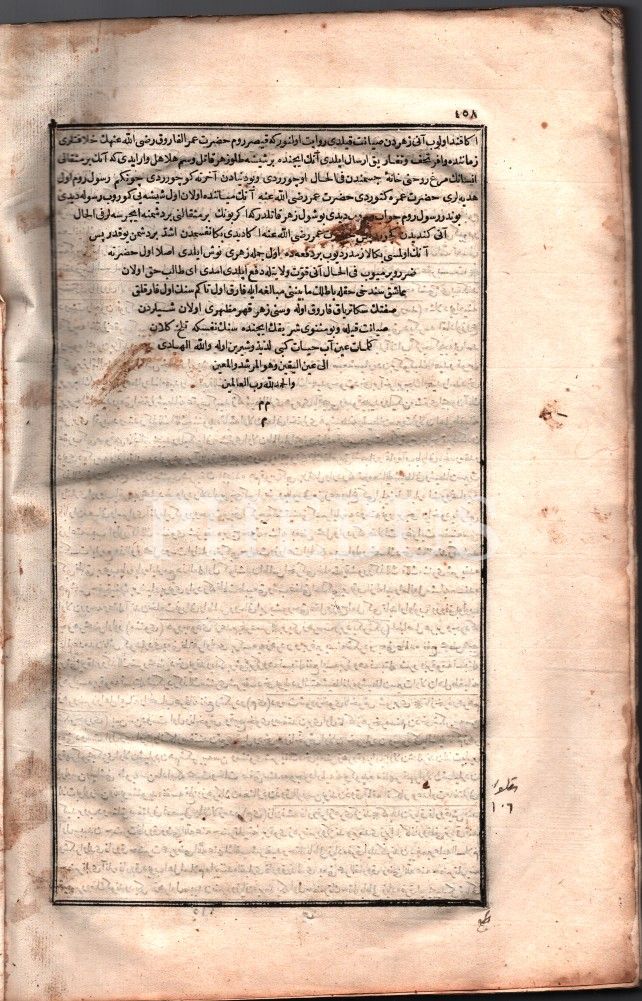 ٤٥٨
اكا فند اولوب آنی زهردن صیانت قیلدی روایت اولنورکه قیصر روم حضرت عمر الفاروق رضی الله عنهك خلافتلری
زماننده وافر تحف و ارسال ایلدی آنك ایچنده بر شیشه طلو زهر قاتل وسم هلاهل وار ایدی که آنك بر مثقالی
انسانك مرغ روحنی خانهٔ جسمندن فی الحال اوچوردی و بو دنیادن آخرته کوچوردی چونکم رسول روم اول
هدیه لری حضرت عمره کتوردی حضرت عمر رضی الله عنه آنك میاننده اولان اول شیشه یی کوروب رسوله دیدی
بو ندر رسول روم جواب ویروب دیدی بو شول زهر قاتلدر که اکر بونك بر مثقالنی بر دشمنه ایچرسه لر فی الحال
آنی کندیدن عمر رضی الله عنه اکا دیدی بکا نفسمدن اشد بر دشمن یوقدر پس
آنك اولمسی بکا لازمدر دیوب بر دفعه ده اول جمله زهری نوش ایلدی اصلا اول حضرته
ضرر ویرمیوب فی الحال آنی قوت ولایتله دفع ایلدی ایمدی ای طالب حق اولان
عاشق سن دخی حقله باطلك مابیننی مبالغه ایله فارق اول تا کم سنك اول فارقلق
صفتك سکا تریاق فاروق اوله وسنی زهر قهر مظهری اولان شیلردن
صیانت قیله و بو مثنوی شریفك ایچنده سنك نفسکه تلخ کلان
کلمات عین آب حیات کبی لذیذ و شیرین اوله والله الهادی
الی عین الیقین وهو المرشد والمعین
والحمد لله رب العالمین
م م
م
١٠٦
PHEBUS